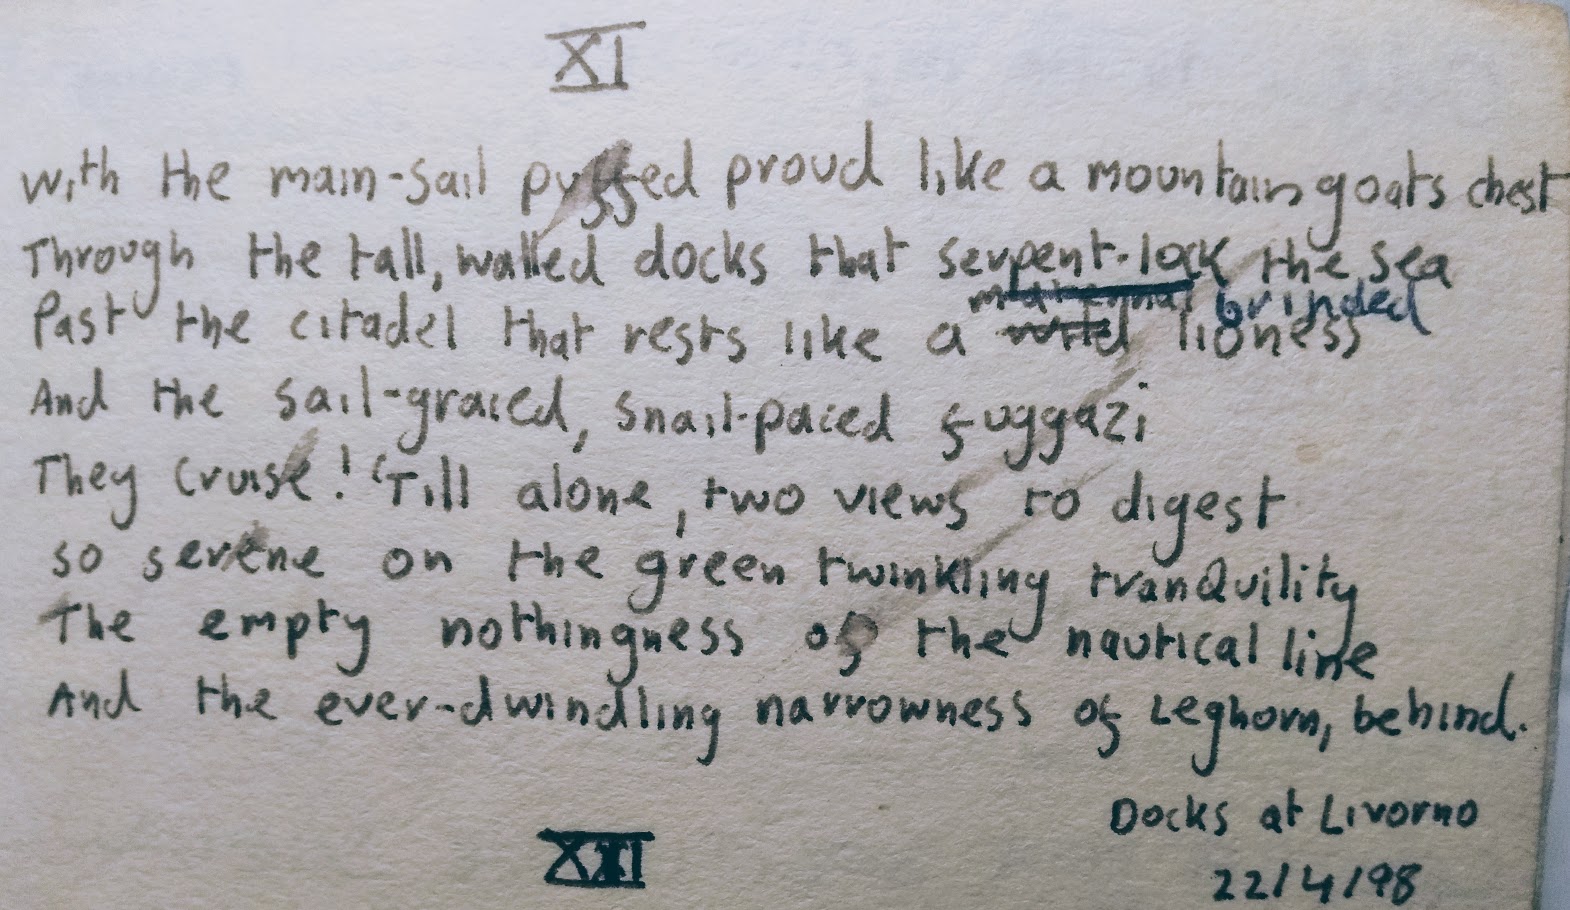 XI
With the main-sail puffed proud like a mountain goats chest
Through the tall, walled docks that serpent-lock the sea
maternal brinded
Past the citadel that rests like a wild lioness
And the sail-graced, snail-paced fuggazi
They cruise! 'Till alone, two views to digest
so serene on the green twinkling tranquility
The empty nothingness of the nautical line
And the ever-dwindling narrowness of Leghorn, behind.
Docks at Livorno
22/4/98
XII